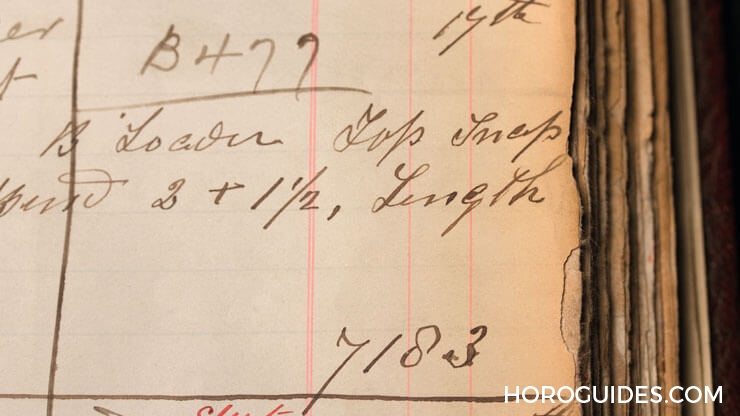 17th
B477
B Loader Top Snap
Bend 2 + 1 1/2, Length
7183
HOROGUIDES.COM